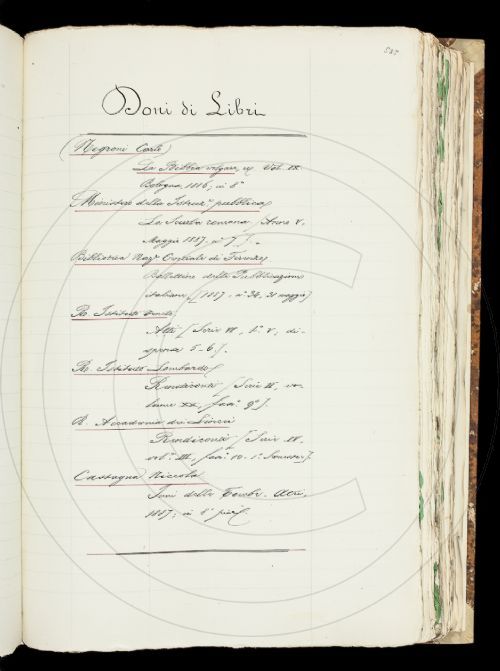 Doni di Libri
(Negroni Carlo)
La Bibbia volgare, ec. Vol. IX
Bologna, 1886; in 8°
Ministero della Istruz.e pubblica
La Scuola romana [Anno V.
Maggio 1887. n° 7.].
Biblioteca Naz.e Centrale di Firenze
Bollettino delle Pubblicazioni
italiane, [1887. n° 34, 31 maggio]
R. Istituto Veneto
Atti [Serie VI, t.° V; di-
spensa 5-6].
R. Istituto Lombardo
Rendiconti [Serie II, vo-
lume XX, fasc.° 9°].
R. Accademia dei Lincei
Rendiconti [Serie IV,
vol.° III, fasc.° 10. 1° Semestre].
Castagna Niccola
Inni delle Acri,
1887; in 8° picc.